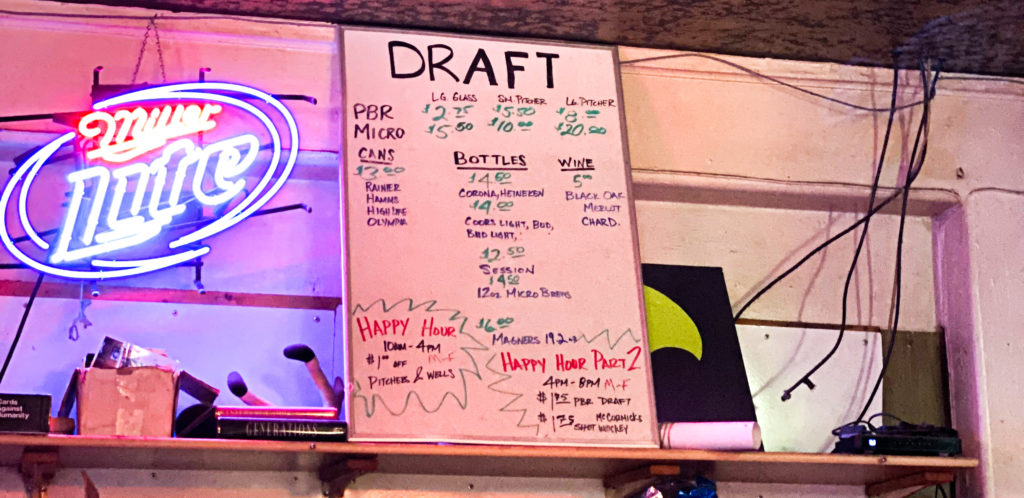 Miller
Lite
DRAFT
LG. GLASS SM. PITCHER LG. PITCHER
PBR $2.75 $5.50 $8.00
MICRO $5.50 $10.00 $20.00
CANS
$3.00
RAINIER
HAMMS
HIGH LIFE
OLYMPIA
BOTTLES
$4.50
CORONA, HEINEKEN
$4.00
COORS LIGHT, BUD,
BUD LIGHT,
$2.50
SESSION
$4.50
12oz MICRO BREWS
$6.00
MAGNERS 19.2oz
WINE
5.00
BLACK OAK
MERLOT
CHARD.
HAPPY HOUR
10AM - 4PM
$1.00 OFF M-F
PITCHERS & WELLS
HAPPY HOUR PART 2
4PM - 8PM M-F
$1.75 PBR DRAFT
$1.75 McCORMICKS
SHOT WHISKEY
Cards
Against
Humanity
GENERATIONS